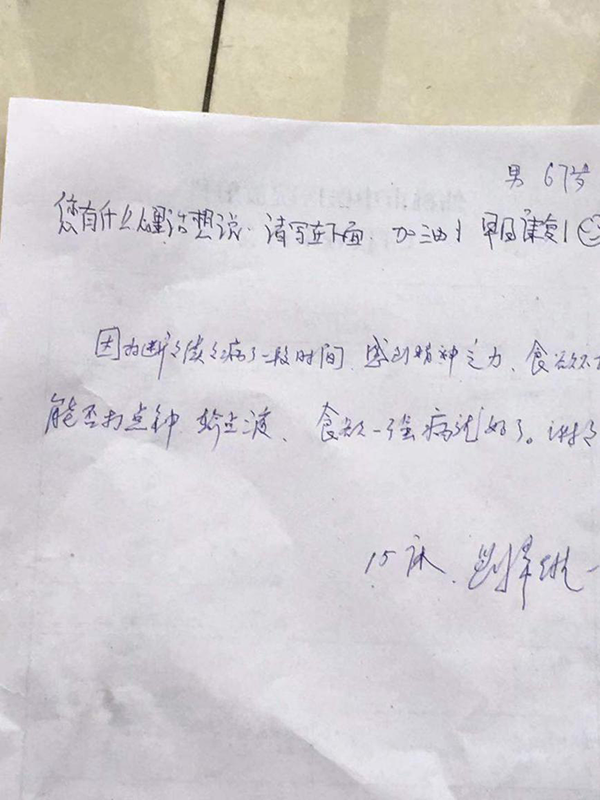 男 67岁
您有什么心里话想说，请写在下面，加油！早日康复！
因为断断续续病了一段时间，感到精神乏力、食欲不
能否打点针、输点液、食欲一强病就好了。谢谢
15床